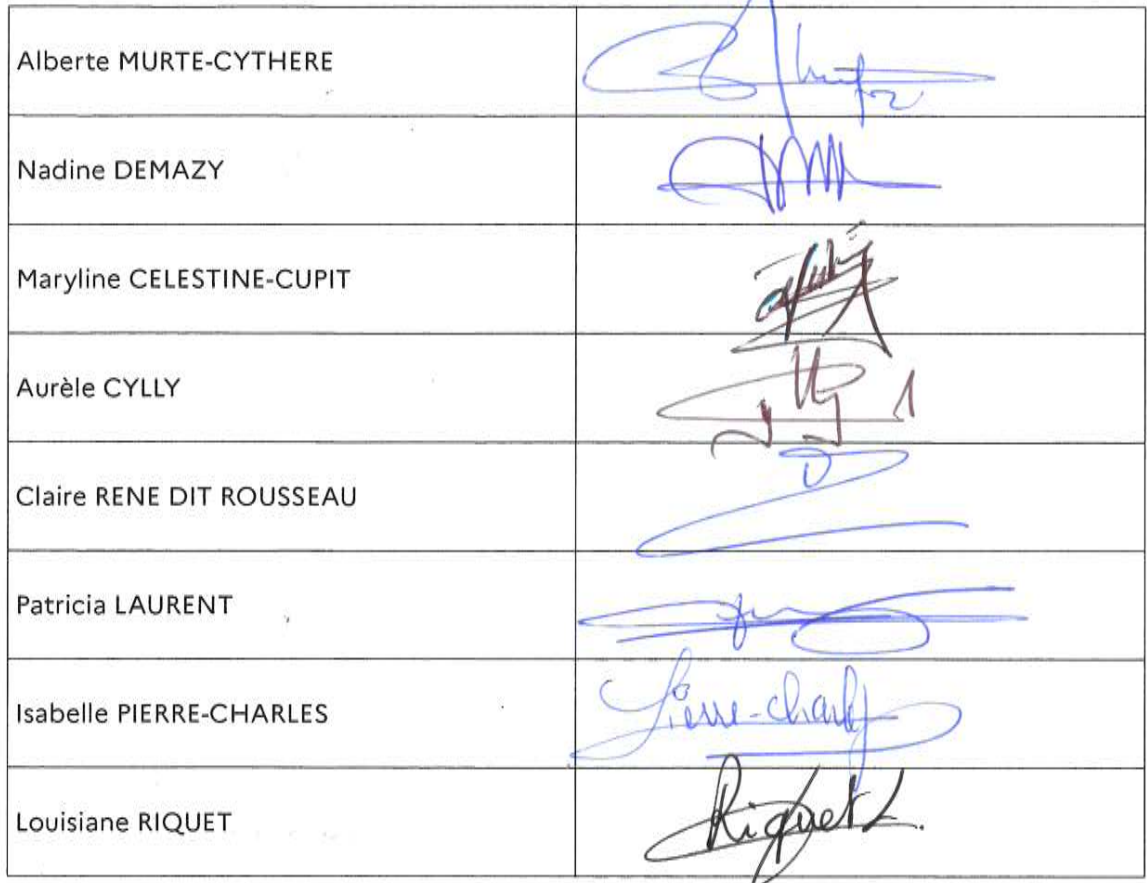 Alberte MURTE-CYTHERE
Nadine DEMAZY
Maryline CELESTINE-CUPIT
Aurèle CYLLY
Claire RENE DIT ROUSSEAU
Patricia LAURENT
Isabelle PIERRE-CHARLES
Pierre-Charles
Louisiane RIQUET
Riquet L.